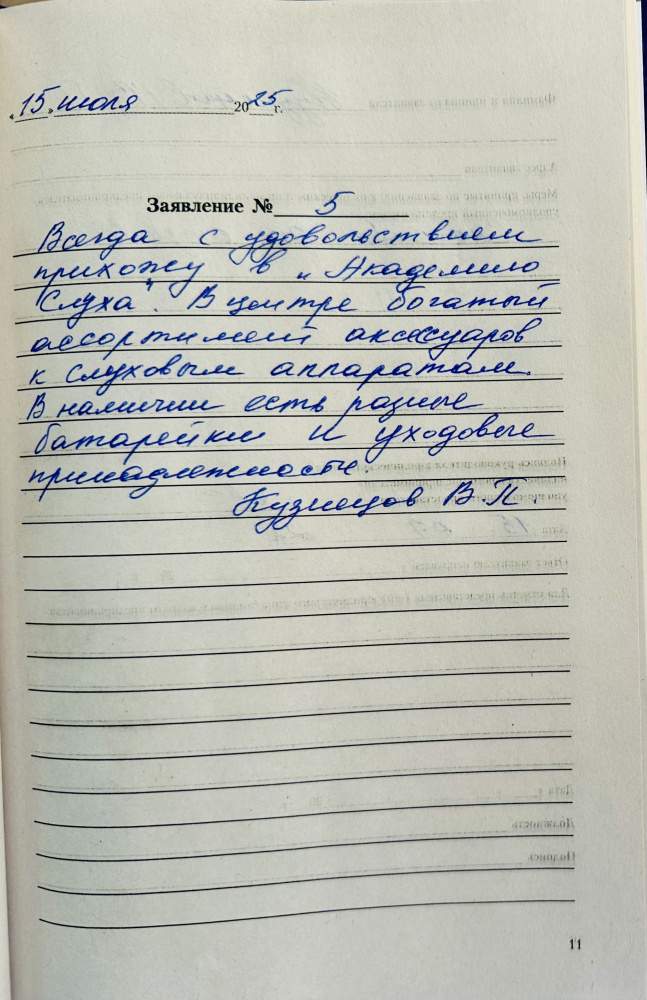 «15» июля 2025 г.
Заявление № 5
Всегда с удовольствием
прихожу в „Академию
Слуха". В центре богатый
ассортимент аксессуаров
к слуховым аппаратам.
В наличии есть разные
батарейки и уходовые
принадлежности.
Кузнецов В.П.
11